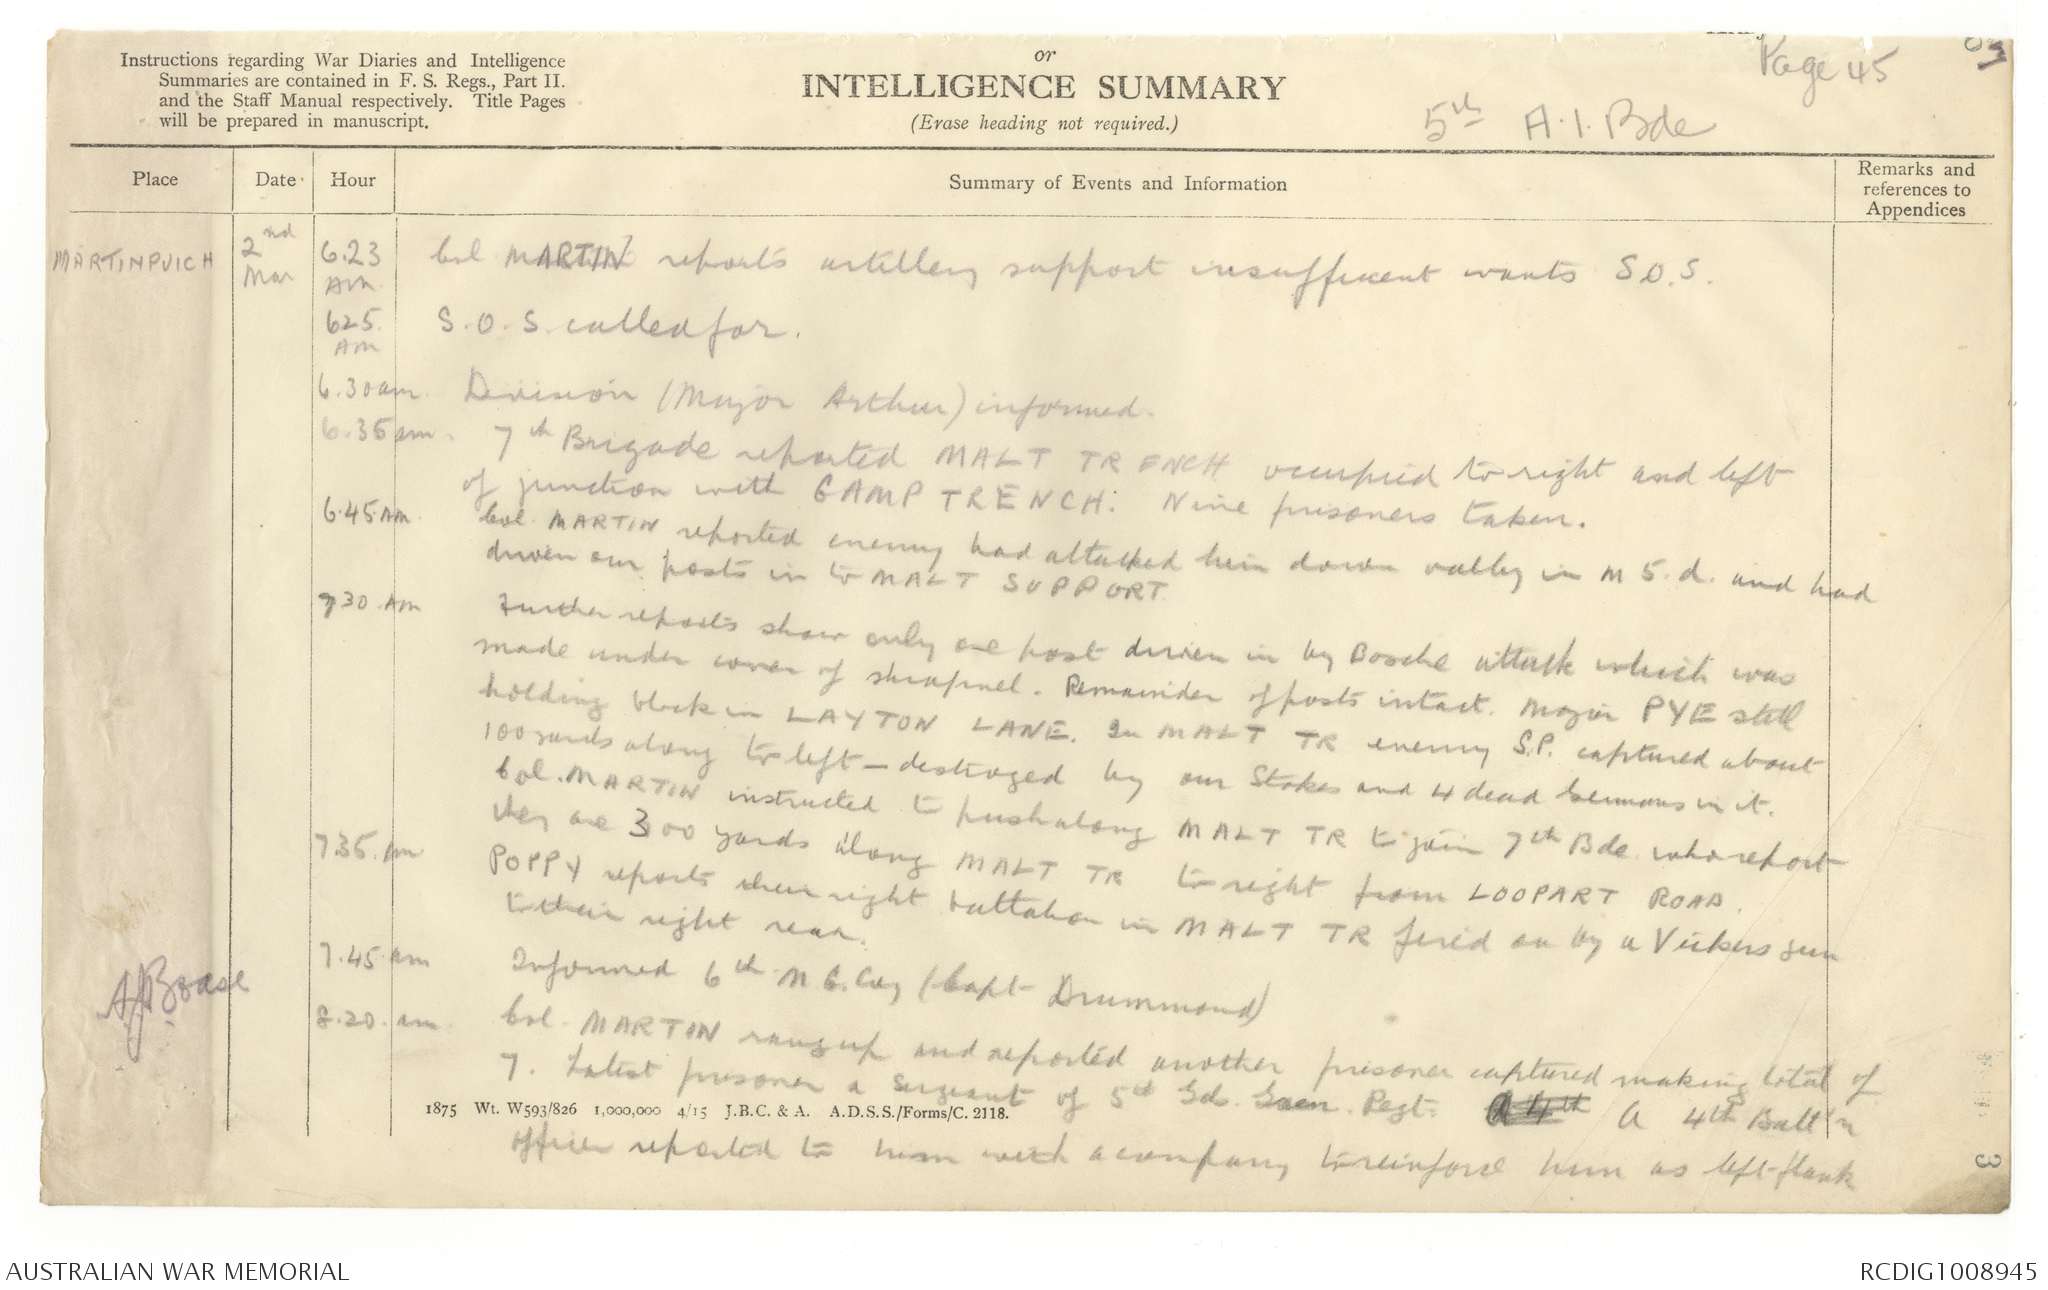 Page 45
Instructions regarding War Diaries and Intelligence
Summaries are contained in F. S. Regs., Part II.
and the Staff Manual respectively. Title Pages
will be prepared in manuscript.
or
INTELLIGENCE SUMMARY
(Erase heading not required.)
5th A.I. Bde
Place
Date
Hour
Summary of Events and Information
Remarks and
references to
Appendices
MARTINPUICH
2nd
Mar
6.23
AM
Col MARTIN reports artillery support insufficient wants S.O.S.
625.
AM
S.O.S. called for.
6.30am. Division (Major Arthur) informed.
6.35am. 7th Brigade reported MALT TRENCH occupied to right and left
of junction with GAMP TRENCH. Nine prisoners taken.
6.45AM. Col. MARTIN reported enemy had attacked him down valley in M5.d. and had
driven our posts in to MALT SUPPORT
730.AM Further reports show only one post driven in by Bosche attack which was
made under cover of shrapnel. Remainder of posts intact. Major PYE still
holding block in LAYTON LANE. In MALT TR enemy S.P. captured about
100 yards along to left – destroyed by our Stokes and 4 dead Germans in it.
Col. MARTIN instructed to push along MALT TR to join 7th Bde. who report
they are 300 yards along MALT TR to right from LOOPART ROAD.
735.am POPPY reports their right battalion in MALT TR fired on by a Vickers gun
to their right rear.
7.45.am Informed 6th M.G. Coy (Capt Drummond)
8.20.am. Col. MARTIN rang up and reported another prisoner captured making total of
7. Latest prisoner a Sergeant of 5th Gds. Gren. Regt. A 4th Batt'n
1875 Wt. W593/826 1,000,000 4/15 J.B.C. & A. A.D.S.S./Forms/C. 2118.
officer reported to him with a company to reinforce him as left flank
3
AUSTRALIAN WAR MEMORIAL
RCDIG1008945